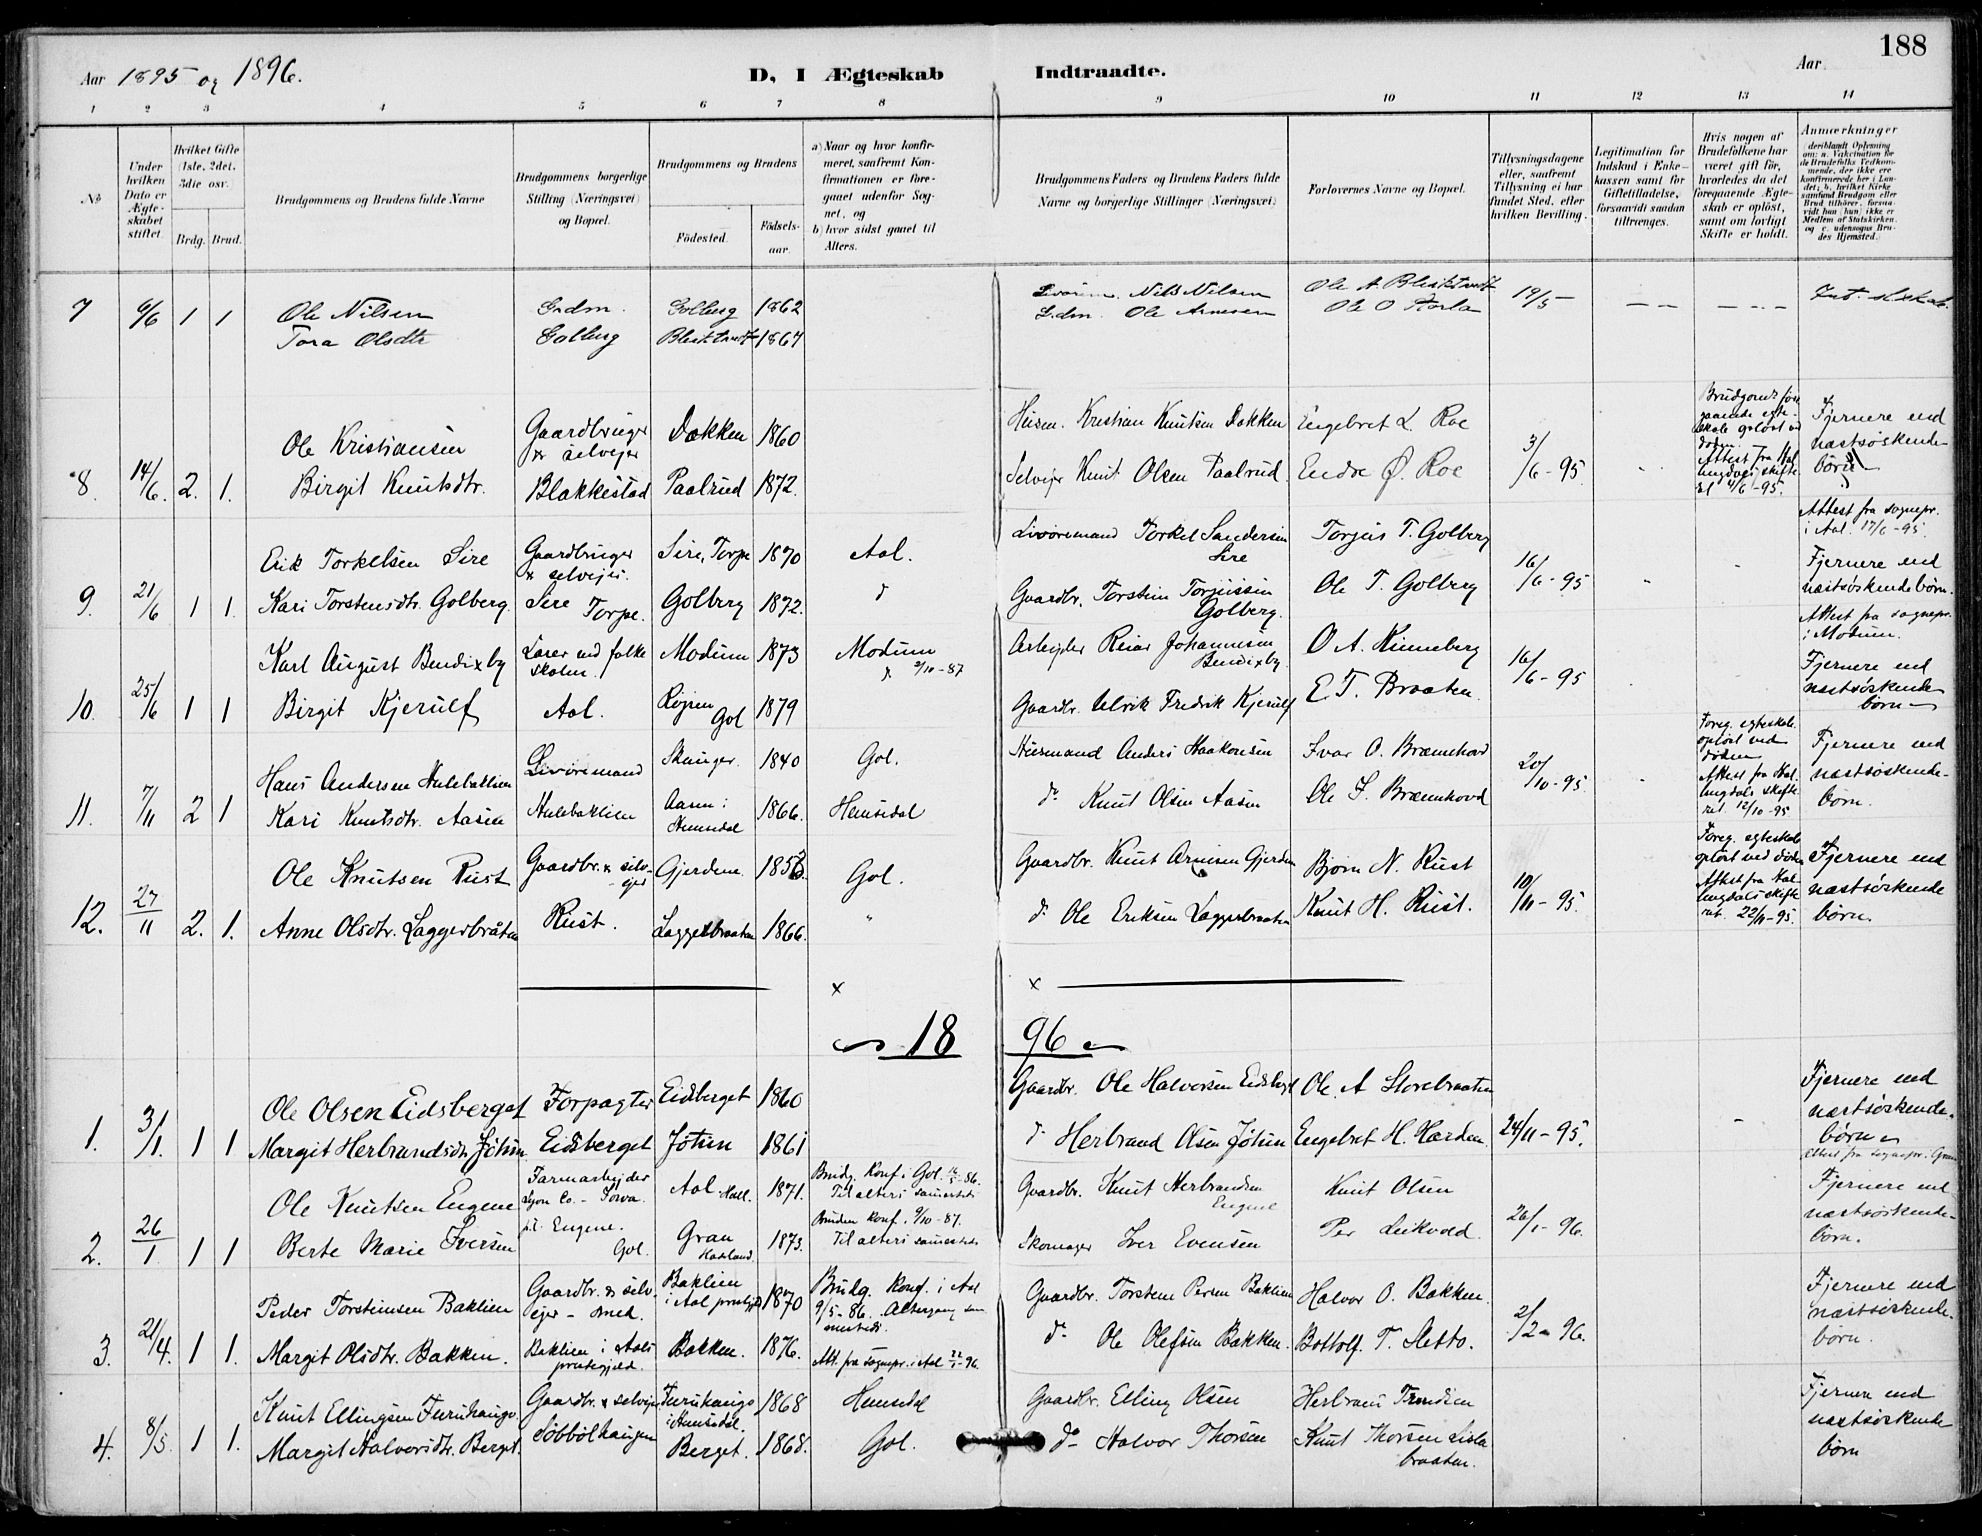 188
Aar 1895 og 1896.
D, I Ægteskab Indtraadte.
Aar
1 2 3 4 5 6 7 8 9 10 11 12 13 14
No
Under hvilken Dato er Ægteskabet stiftet.
Hvilket Gifte (1ste, 2det, 3die osv.
Brdg. Brud.
Brudgommens og Brudens fulde Navne
Brudgommens borgerlige Stilling (Næringsvei) og Bopæl.
Brudgommens og Brudens
Födested.
Födselsaar.
a) Naar og hvor konfirmeret, saafremt Konfirmationen er foregaaet udenfor Sognet, og
b) hvor sidst gaaet til Alters.
Brudgommens Faders og Brudens Faders fulde Navne og borgerlige Stillinger (Næringsvei)
Forlovernes Navne og Bopæl.
Tillysningsdagene eller, saafremt Tillysning ei har fundet Sted, efter hvilken Bevilling.
Legitimation for Indskud i Enkekassen samt for Giftetilladelse, forsaavidt saadan tiltrænges.
Hvis nogen af Brudefolkene har været gift för, hvorledes da det foregaaende Ægteskab er oplöst, samt om lovligt Skifte er holdt.
Anmærkninger (deriblandt Oplysning om: a. Vakcination for de Brudefolks Vedkommende, der ikke ere konfirmerede her i Landet; b. hvilket Kirkesamfund Brudgom eller Brud tilhörer, forsaavidt han (hun) ikke er Medlem af Statskirken, og c. udensogns Brudes Hjemsted.)
7 6/6 1 1 Ole Nilsen Grdm. Golberg 1862 Nils Nilsen 19/5
Tora Olsdtr Golberg 1867 Ole Arnesen
8. 14/6 2. 1. Ole Kristiansen Gaardbruger & selvejer Dokken 1860 Husm. Kristian Knutsen Dokken Engebret L. Roe 3/6-95 Fjernere end næstsøskendebørn
Brudgoms foregaaende egteskab opløst ved døden. Attest fra Hallingdals skifteret 4/6-95.
Birgit Knutsdtr. Blakkestad Paalrud 1872. Selvejer Knut Olsen Paalrud. Endre Ø. Roe
Attest fra sognepr. i Aal. 17/6-95.
9. 21/6 1 1. Erik Torkelsen Sire Gaardbruger & selvejer. Sire, Torpe 1870 Aal. Livøremand Torkel Sandersen Sire Torgus T. Golberg 16/6-95 Fjernere end næstsøskendebørn.
Kari Torstensdtr. Golberg. Sire Torpe. Golberg 1872. Gaardbr. Torstein Torjussen Golberg. Ole T. Golberg
Attest fra sognepr. i Modum.
10. 25/6 1 1 Karl August Bendixby Lærer ved folkeskolen. Modum 1873 Modum 2/10-87 Arbejder Reier Johannesen Bendixby. O. A. Kinneberg 16/6-95 Fjernere end næstsøskendebørn
Birgit Kjerulf Aal. Gol 1879 Gaardbr. Ulrik Fredrik Kjerulf E. T. Braaten.
11. 7/11 2 1 Hans Andersen Hulebaklien Livøremand 1840 Gol. Husmand Anders Haakonsen Ivar O. Brænnhovd 20/10-95 Fjernere end næstsøskendebørn.
Foreg. egteskab opløst ved døden Attest fra Hallingdals skifteret. 12/10-95
Kari Knutsdtr. Aasen Hulebaklien Aasen i Hemsedal 1866. Hemsedal do Knut Olsen Aasen Ole I. Brænnhovd
12. 27/11 2. 1. Ole Knutsen Rust Gaardbr. & selvejer Gjerden Gol. Gaardbr. Knut Arnesen Gjerden Bjørn N. Rust 10/11-95. Fjernere end næstsøskendebørn.
Foreg. egteskab opløst ved døden Attest fra Hallingdals skifteret. 22/11-95.
Anne Olsdtr. Laggerbråten Rust. Laggerbraaten 1866. " do Ole Eriksen Laggerbraaten Knut H. Rust.
x x
1896
1. 3/1. 1 1 Ole Olsen Eidsberget Forpagter Eidsberget 1860 Gaardbr. Ole Halvorsen Eidsberget Ole. A Storebraaten 24/11-95. Fjernere end næstsøskendebørn
Margit Herbrandsdtr Jøtun Eidsberget Jøtun 1861 do Herbrand Olsen Jøtun Engebret H. Harden.
Attest fra sognepr. Gran
2. 26/1 1 1 Ole Knutsen Engene Farmarbejder Lyon Co. Iowa. p.t. Engene. Gol. Aal Hall. 1871. Brudg. konf. i Gol. -86. Til alters sammesteds Gaardbr. Knut Herbrandsen Engene Knut Olsen 26/1-96. Fjernere end næstsøskendebørn.
Berte Marie Iversen Gran Hadeland 1873. Bruden konf. 9/10-87. Til alters sammesteds Skomager Iver Evensen Per Leikvold.
3. 21/4. 1 1. Peder Torsteinsen Baklien Gaardbr. & selvejer - Smed. Baklien i Aal prestegjeld 1870 Brudg. konf. i Aal 9/5-86. Altergang sammesteds. Gaardbr. Torstein Persen Baklien Halvor O. Bakken. 2/2-96. Fjernere end næstsøskendebørn.
Margit Olsdtr. Bakken. Baklien i Aals prestegjeld Bakken. 1876. Att. fra sognepr. i Aal -96. do Ole Olefsen Bakken. Bottolf. T. Sletto.
4. 8/5. 1 1. Knut Ellingsen Furuhaugo. Gaardbr. & selvejer Furuhaugo i Hemsedal. 1868 Hemsedal Gaardbr. Elling Olsen Herbrand Trondsen Fjernere end næstsøskendebørn
Margit Halvorsdtr. Berget. Løbbølhaugen Berget. 1868. Gol. do Halvor Thorsen Knut Thorsen Lislebraaten.